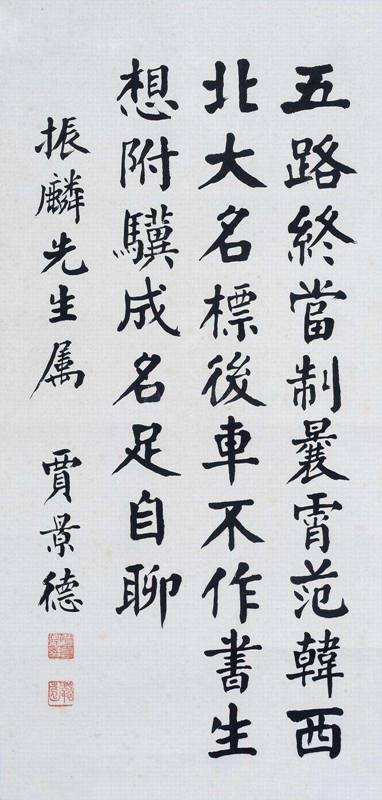 五路終當制曩霄范韓西
北大名標後車不作書生
想附驥成名足自聊
振麟先生属 賈景德